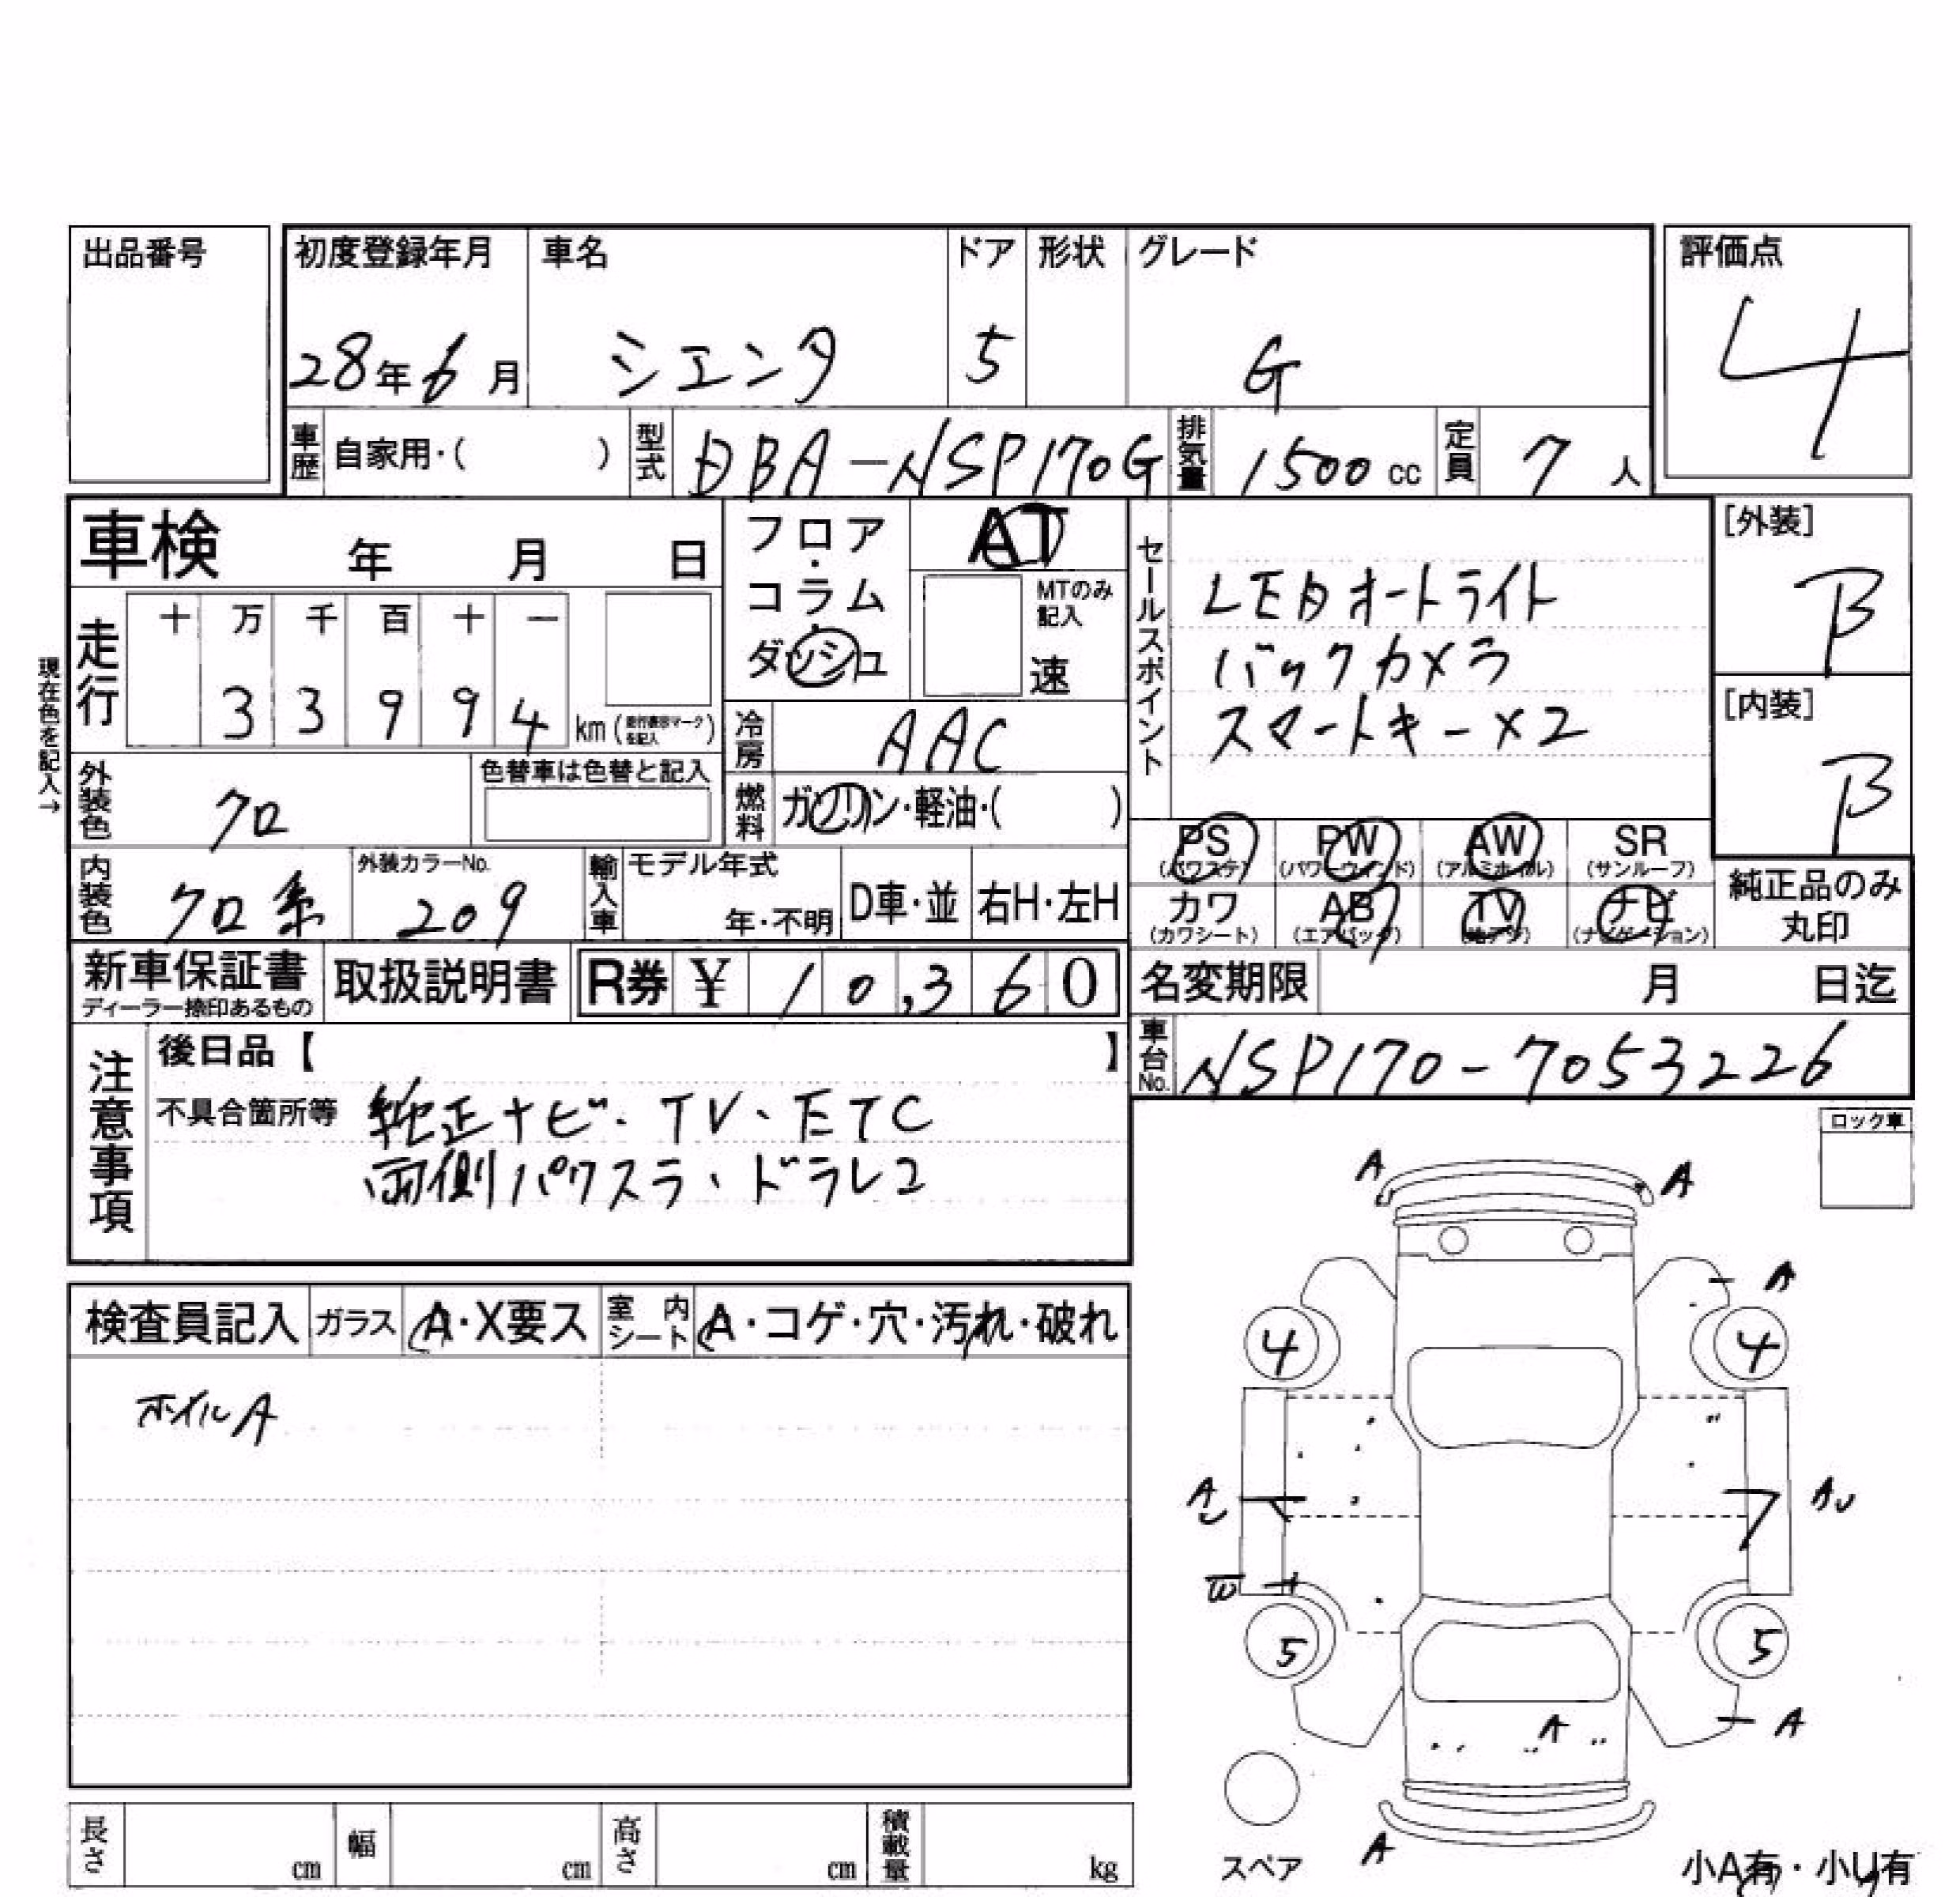 出品番号
初度登録年月 車名 ドア 形状 グレード 評価点
28年6月 シエンタ 5 G 4
車歴 自家用・( ) 型式 DBA-NSP170G 排気量 1500cc 定員 7人
車検 年 月 日
フロア・コラム・ダッシュ
AT
MTのみ記入
速
セールスポイント
LEDオートライト
バックカメラ
スマートキー×2
[外装]
B
[内装]
B
現在色を記入→
走行 十 万 千 百 十 一
3 3 9 9 4 km(走行表示マークを記入)
冷房 AAC
外装色 クロ 色替車は色替と記入
燃料 ガソリン・軽油・( )
PS (パワステ) PW (パワーウインド) AW (アルミホイル) SR (サンルーフ)
カワ (カワシート) AB (エアバッグ) TV (地デジ) ナビ (ナビゲーション)
純正品のみ丸印
内装色 クロ系 外装カラーNo. 209
輸入車 モデル年式 年・不明 D車・並 右H・左H
新車保証書 ディーラー捺印あるもの 取扱説明書 R券 ¥ 10,360
名変期限 月 日迄
車台No. NSP170-7053226
注意事項
後日品【 】
不具合箇所等 純正ナビ・TV・ETC
両側パワスラ、ドラレコ
ロック車
検査員記入 ガラス A・X要ス 室内シート A・コゲ・穴・汚れ・破れ
ホイルA
A A
A
4 4
AU AU
W
5 5
A
A
A
スペア
小A有・小U有
長さ cm 幅 cm 高さ cm 積載量 kg